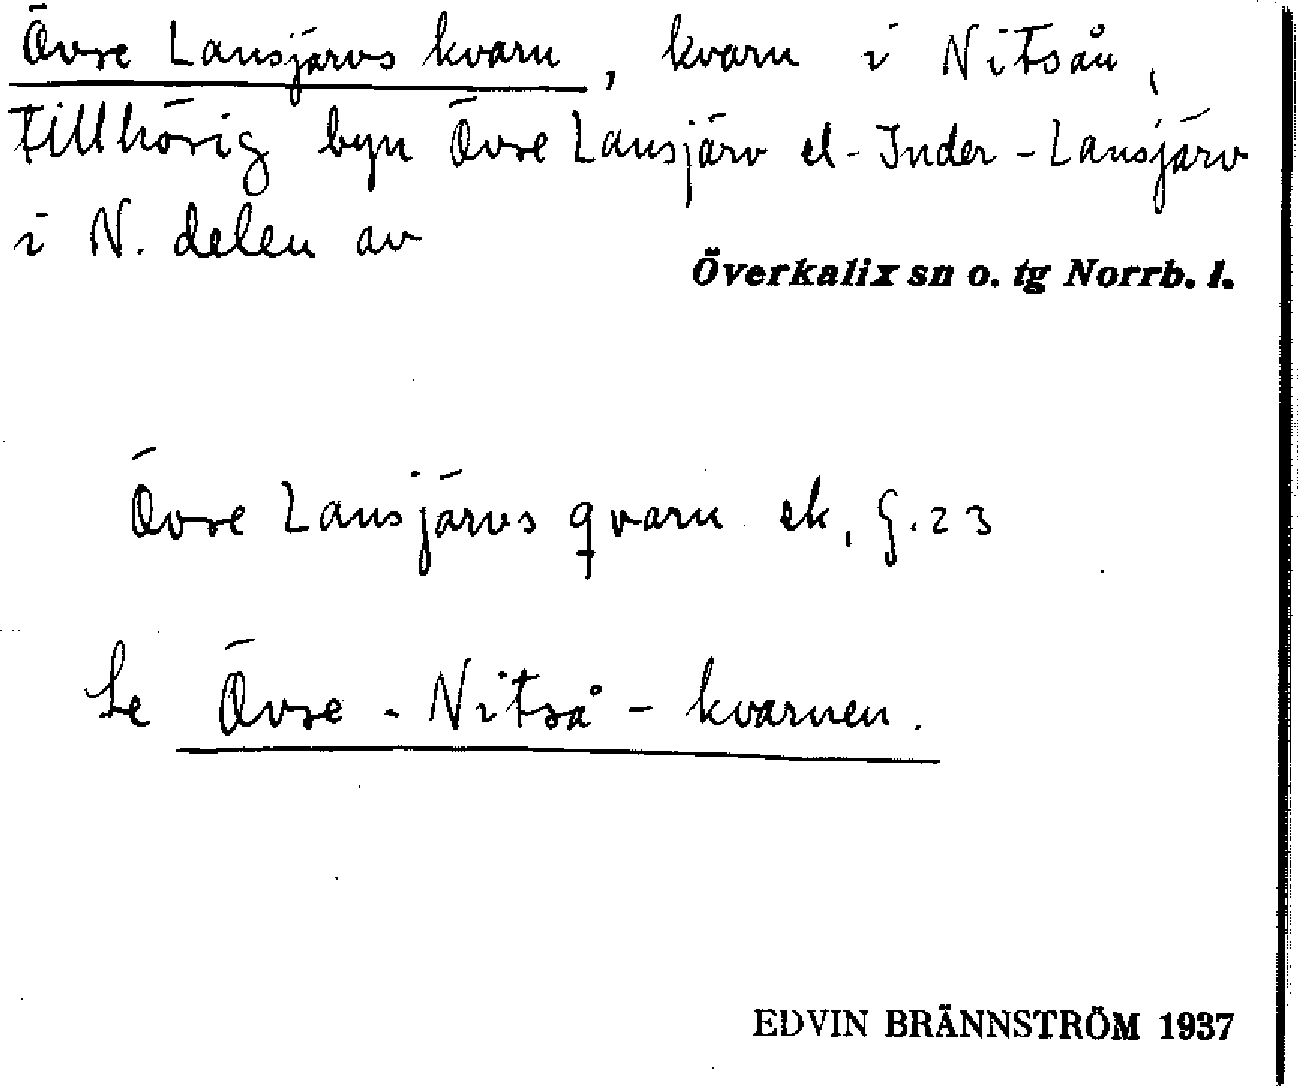 Övre Lansjärvs kvarn, kvarn i Nitsån,
tillhörig byn Övre Lansjärv el. Inder-Lansjärv
i N. delen av
Överkalix sn o. tg Norrb. l.
Övre Lansjärvs qvarn ek, g. 23
Se Övre-Nitså-kvarnen.
EDVIN BRÄNNSTRÖM 1937